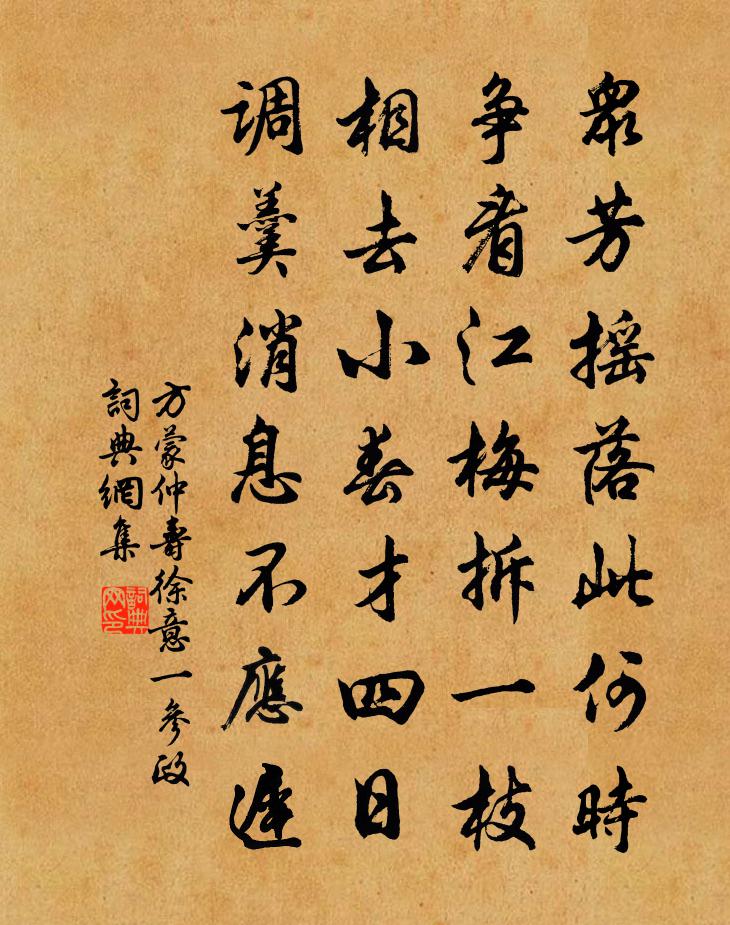 眾芳摇落此何時
争看江梅拆一枝
相去小春才四日
调羹消息不應遲
方蒙仲壽徐意一參政
詞典網集
詞典网印